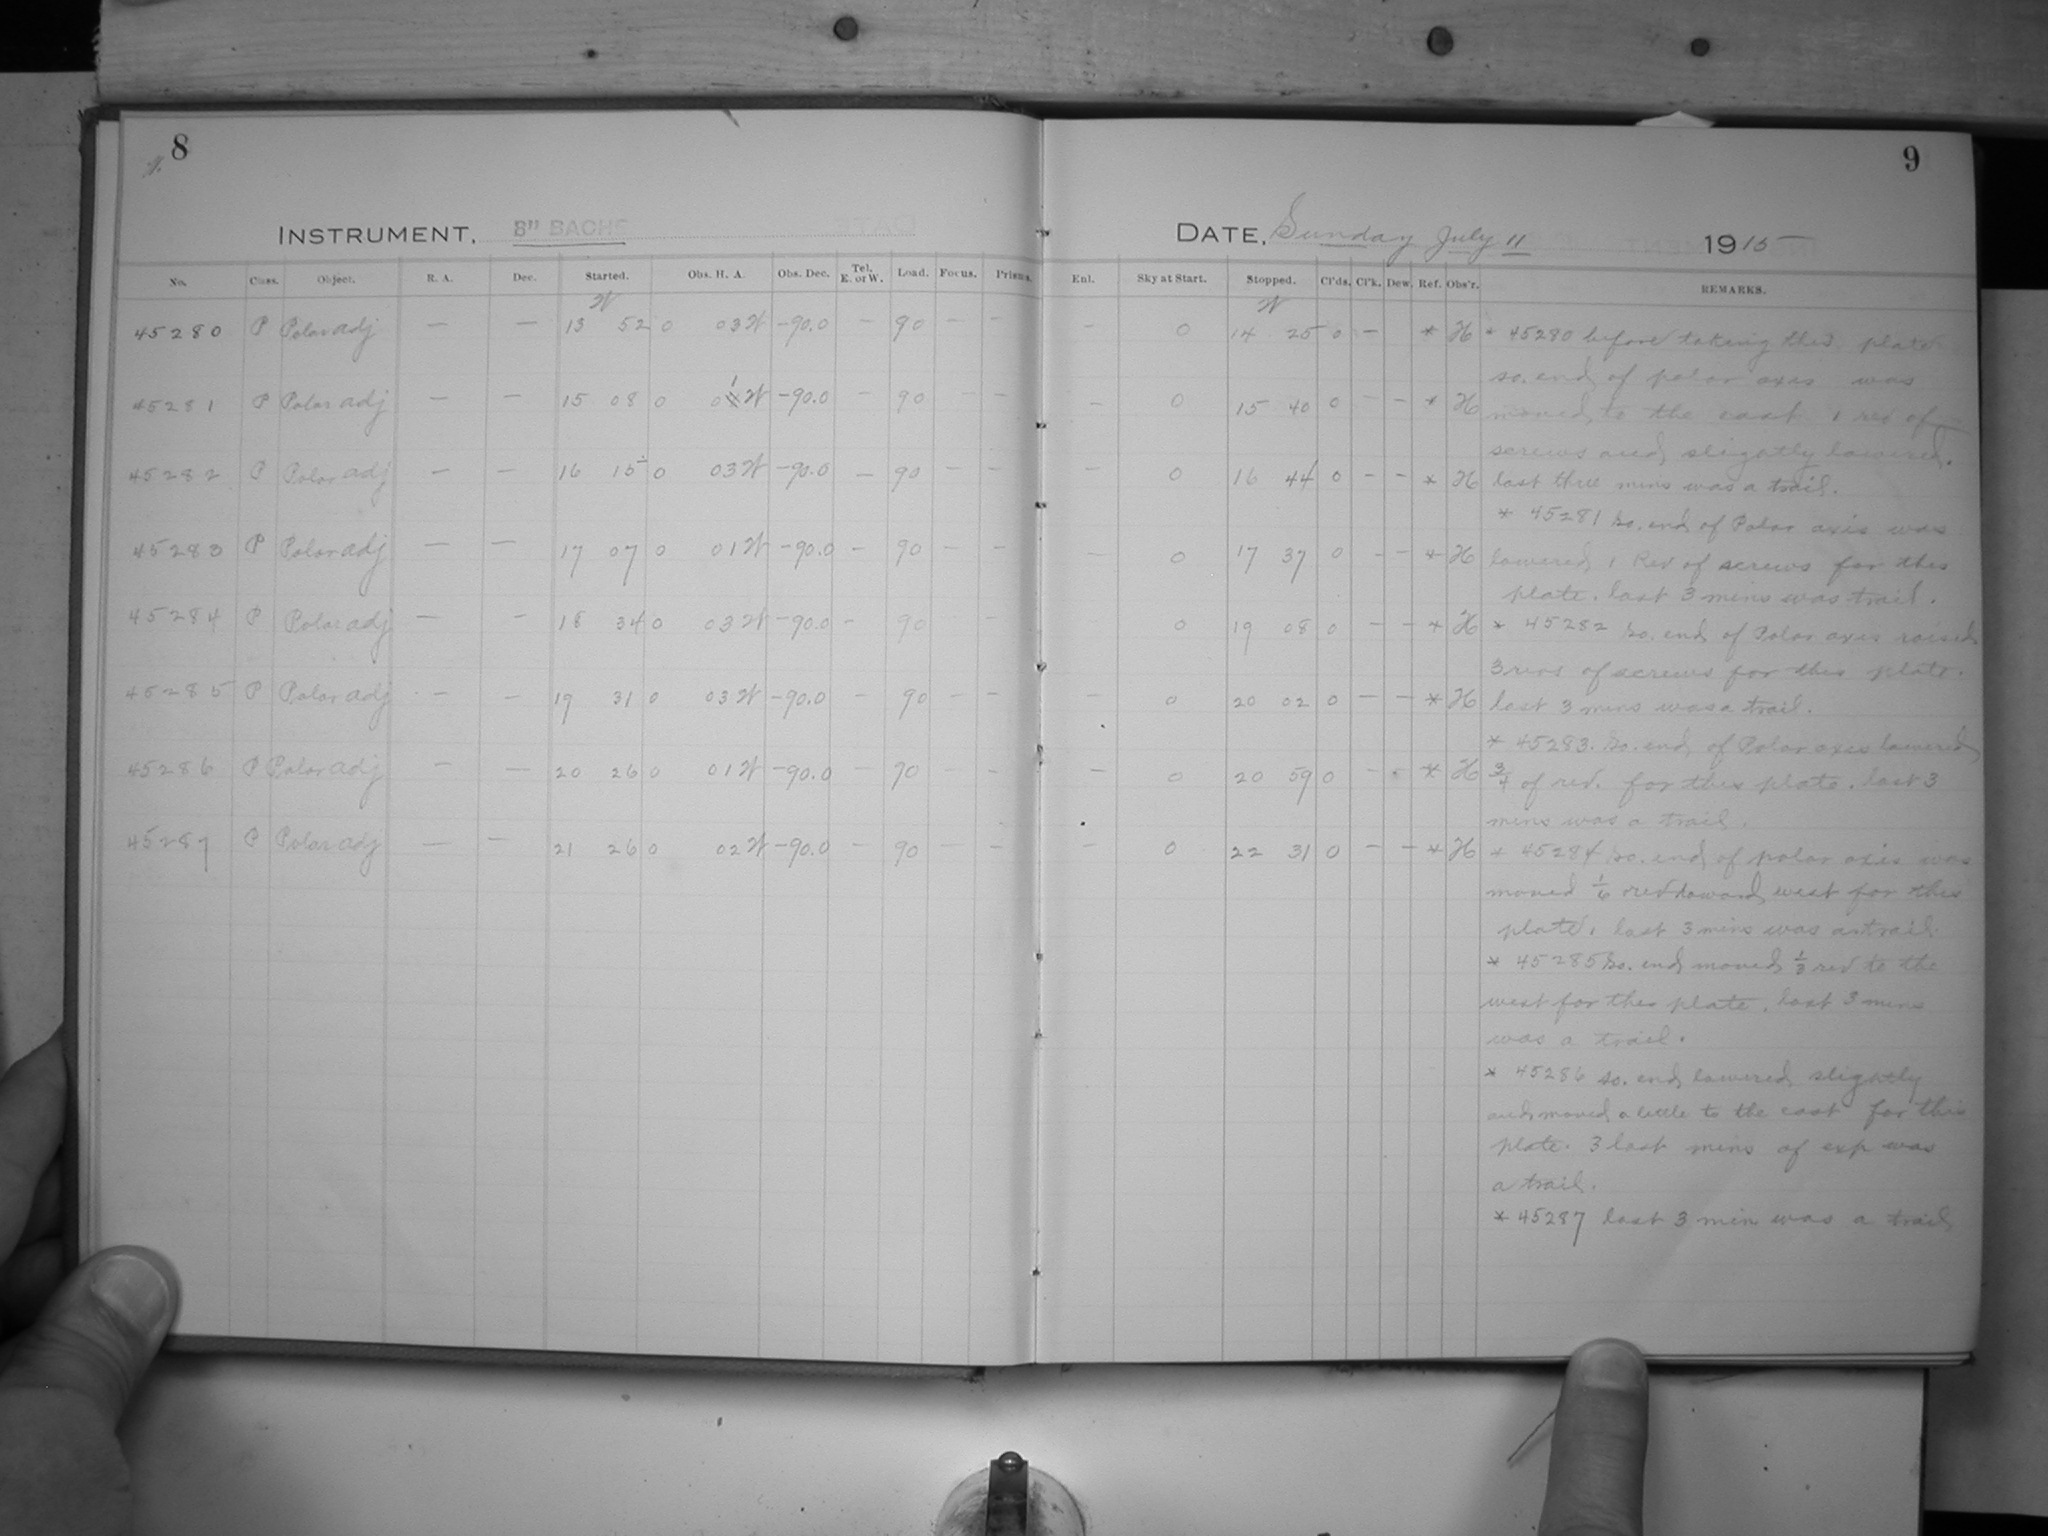 8
INSTRUMENT, B" BACHE
No. Class. Object. R. A. Dec. Started. Obs. H. A. Obs. Dec. Tel. E. or W. Load. Focus. Prisms.
W
45280 P Polar adj — — 13 52 0 03 W -90.0 — 90 — —
45281 P Polar adj — — 15 08 0 01 W -90.0 — 90 — —
45282 P Polar adj — — 16 15 0 03 W -90.0 — 90 — —
45283 P Polar adj — — 17 07 0 01 W -90.0 — 90 — —
45284 P Polar adj — — 18 34 0 03 W -90.0 — 90 — —
45285 P Polar adj — — 19 31 0 03 W -90.0 — 90 — —
45286 P Polar adj — — 20 26 0 01 W -90.0 — 90 — —
45287 P Polar adj — — 21 26 0 02 W -90.0 — 90 — —
9
DATE, Sunday July 11 1915
Enl. Sky at Start. Stopped. Cl'ds. Cl'k. Dew. Ref. Obs'r. REMARKS.
W
— 0 14 25 0 — * H
— 0 15 40 0 — — * H
— 0 16 44 0 — — * H
— 0 17 37 0 — — * H
0 19 08 0 — — * H
— 0 20 02 0 — — * H
— 0 20 59 0 — - * H
— 0 22 31 0 — — * H
* 45280 before taking this plate
so. end of polar axis was
moved to the east 1 rev of
screws and slightly lowered.
last three mins was a trail.
* 45281 So. end of Polar axis was
lowered 1 Rev of screws for this
plate. last 3 mins was trail.
* 45282 So. end of Polar axis raised
3 revs of screws for this plate.
last 3 mins was a trail.
* 45283. So. end of Polar axis lowered
3/4 of rev. for this plate. last 3
mins was a trail.
* 45284 So. end of polar axis was
moved 1/6 rev toward west for this
plate, last 3 mins was a trail.
* 45285 So. end moved 1/3 rev to the
west for this plate, last 3 mins
was a trail.
* 45286 so. end lowered slightly
and moved a little to the east for this
plate. 3 last mins of exp was
a trail.
* 45287 last 3 min was a trail